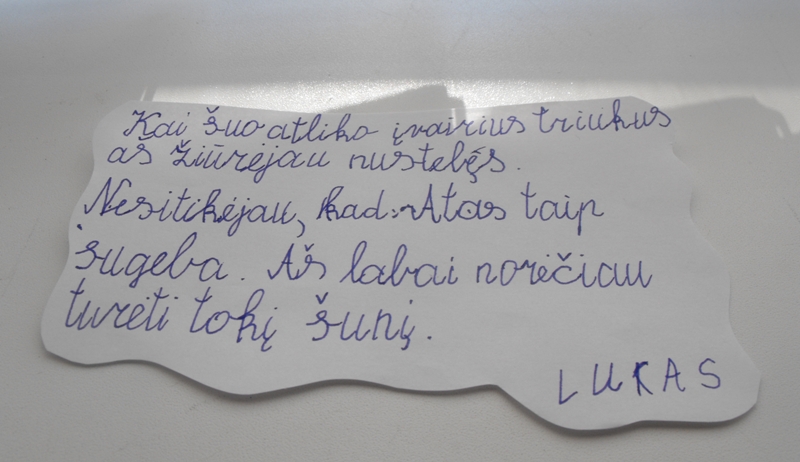 Kai šuo atliko įvairius triukus
aš žiūrėjau nustebęs.
Nesitikėjau, kad Atas taip
sugeba. Aš labai norėčiau
turėti tokį šunį.
LUKAS